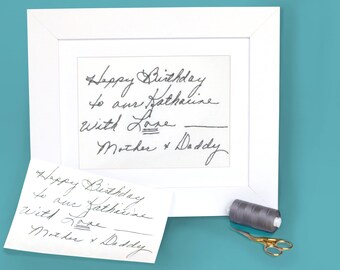 Happy Birthday
to our Katharine
With Love ____
Mother & Daddy
Happy Birthday
to our Katharine
With Love ____
Mother & Daddy